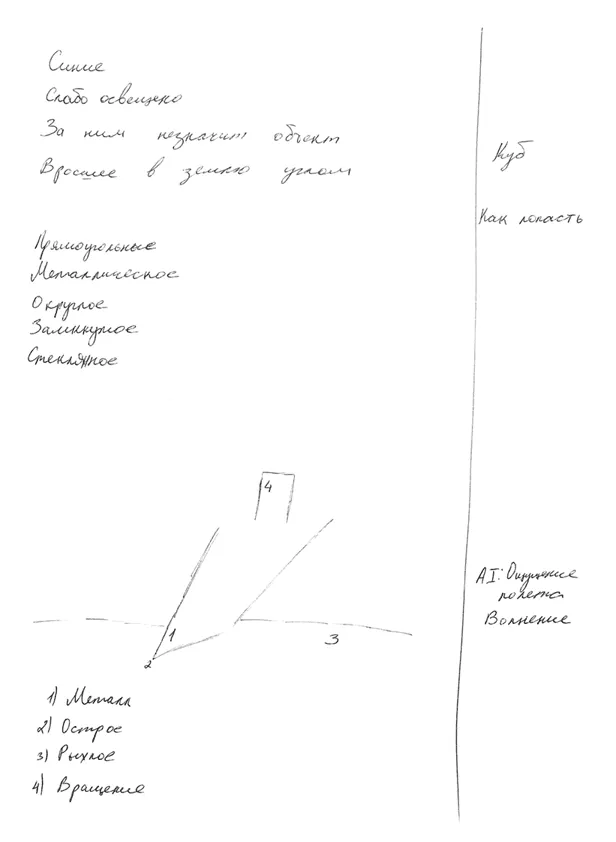 Синие
Слабо освещено
За ним незначит объект
Вросшее в землю углом
Куб
Как лопасть
Прямоугольные
Металлическое
Округлое
Замкнутое
Стеклянное
4
1
2
3
AI: Ощущение
полета
Волнение
1) Металл
2) Острое
3) Рыхлое
4) Вращение